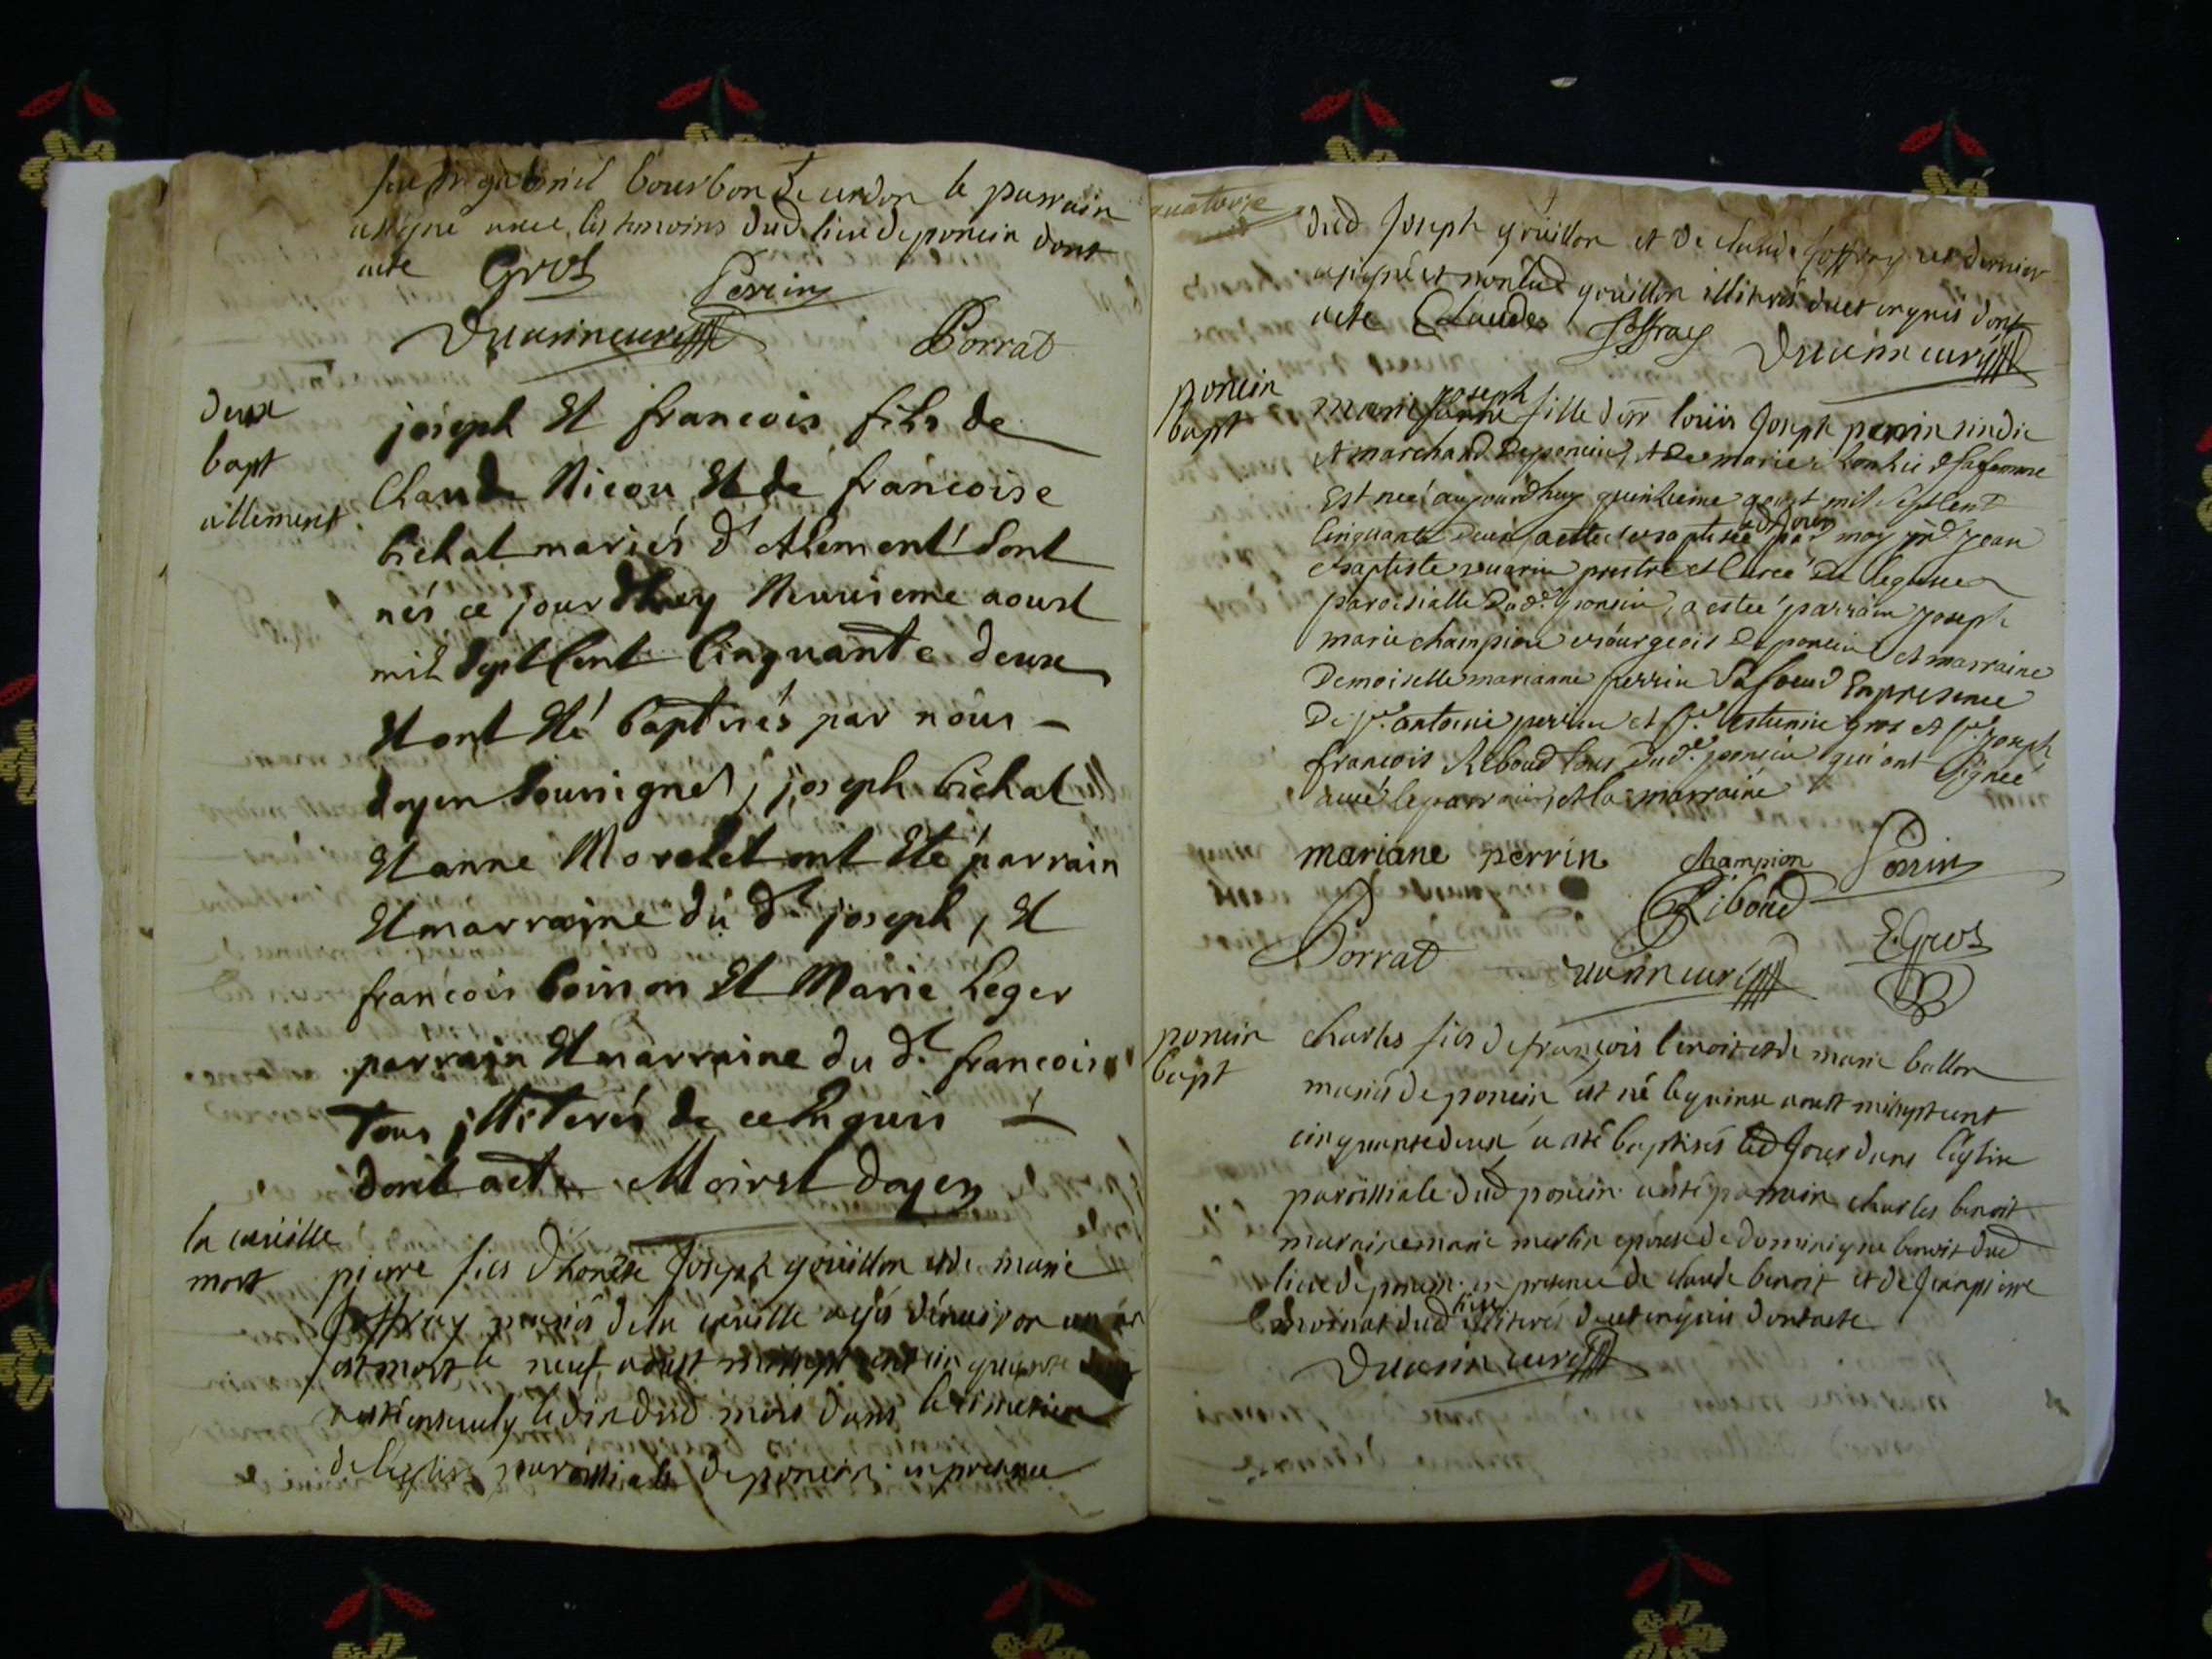 bourbon de cerdon le parrain
a signé avec les temoins dud. lieu de poncin dont
acte Gros Perrin
Duarin curé Porrat
deux
bapt
allement
joseph Et francois fils de
Claude Nicou Et de francoise
bichat mariés d'Alement sont
nés ce jourdhuy Neuvieme aoust
mil Sept Cent Cinquante deux
Et ont Eté baptisés par nous
doyen Soussigned, joseph bichat
Et anne Morelet ont Eté parrain
Et marraine du dt joseph, Et
francois boisson Et Marie Leger
parrain Et marraine du dt francois
Tous illiterés de ce Enquis
dont acte Moirot doyen
la cueille
mort
pierre fils d'honête Joseph goüillon et de marie
Joffray mariés de la cueille agés d'environ un an
est mort le neuf aoust mil sept cent cinquante deux
a esté enseuely le dix dud. mois dans le cimetiere
de l'eglise paroissiale de poncin en presence
quatorze
dud Joseph goüillon et de claude Joffray ce dernier
a signé et non led goüillon illiterés de ce enquis dont
acte Claude Joffray Duarin curé
poncin
bapt
joseph
marie fille d'sr loüis Joseph perrin sindic
Et marchand de poncin, et de marie sa femme
Est neé aujourdhuy quinzieme aoust mil Sept Cent
Cinquante deux a ettée baptisée led jour par moy prd jean
baptiste duarin prestre et Curé de legise
paroissialle dud. poncin, a esteé parrain joseph
marie champion bourgeois de poncin et marraine
Demoiselle marianne perrin Sa soeur En presence
De sr. antoine perrin et sr. estienne gros et sr. joseph
francois Riboud tous dud. poncin qui ont Signeé
avec le parrain et la marraine
mariane perrin champion Perrin
Riboud
Porrat Duarin curé E. Gros
poncin
bapt
charles fils de françois benoit et de marie ballon
mariés de poncin est né le quinze aoust mil sept cent
cinquante deux a esté baptisés led Jour dans l'eglise
paroissiale dud poncin a esté parrain charles benoit
maraine marie merlin epouse de dominique benoit dud
lieu de poncin en presence de claude benoit et de Jean pierre
dud lieu illiterés de ce enquis dont acte
Duarin curé